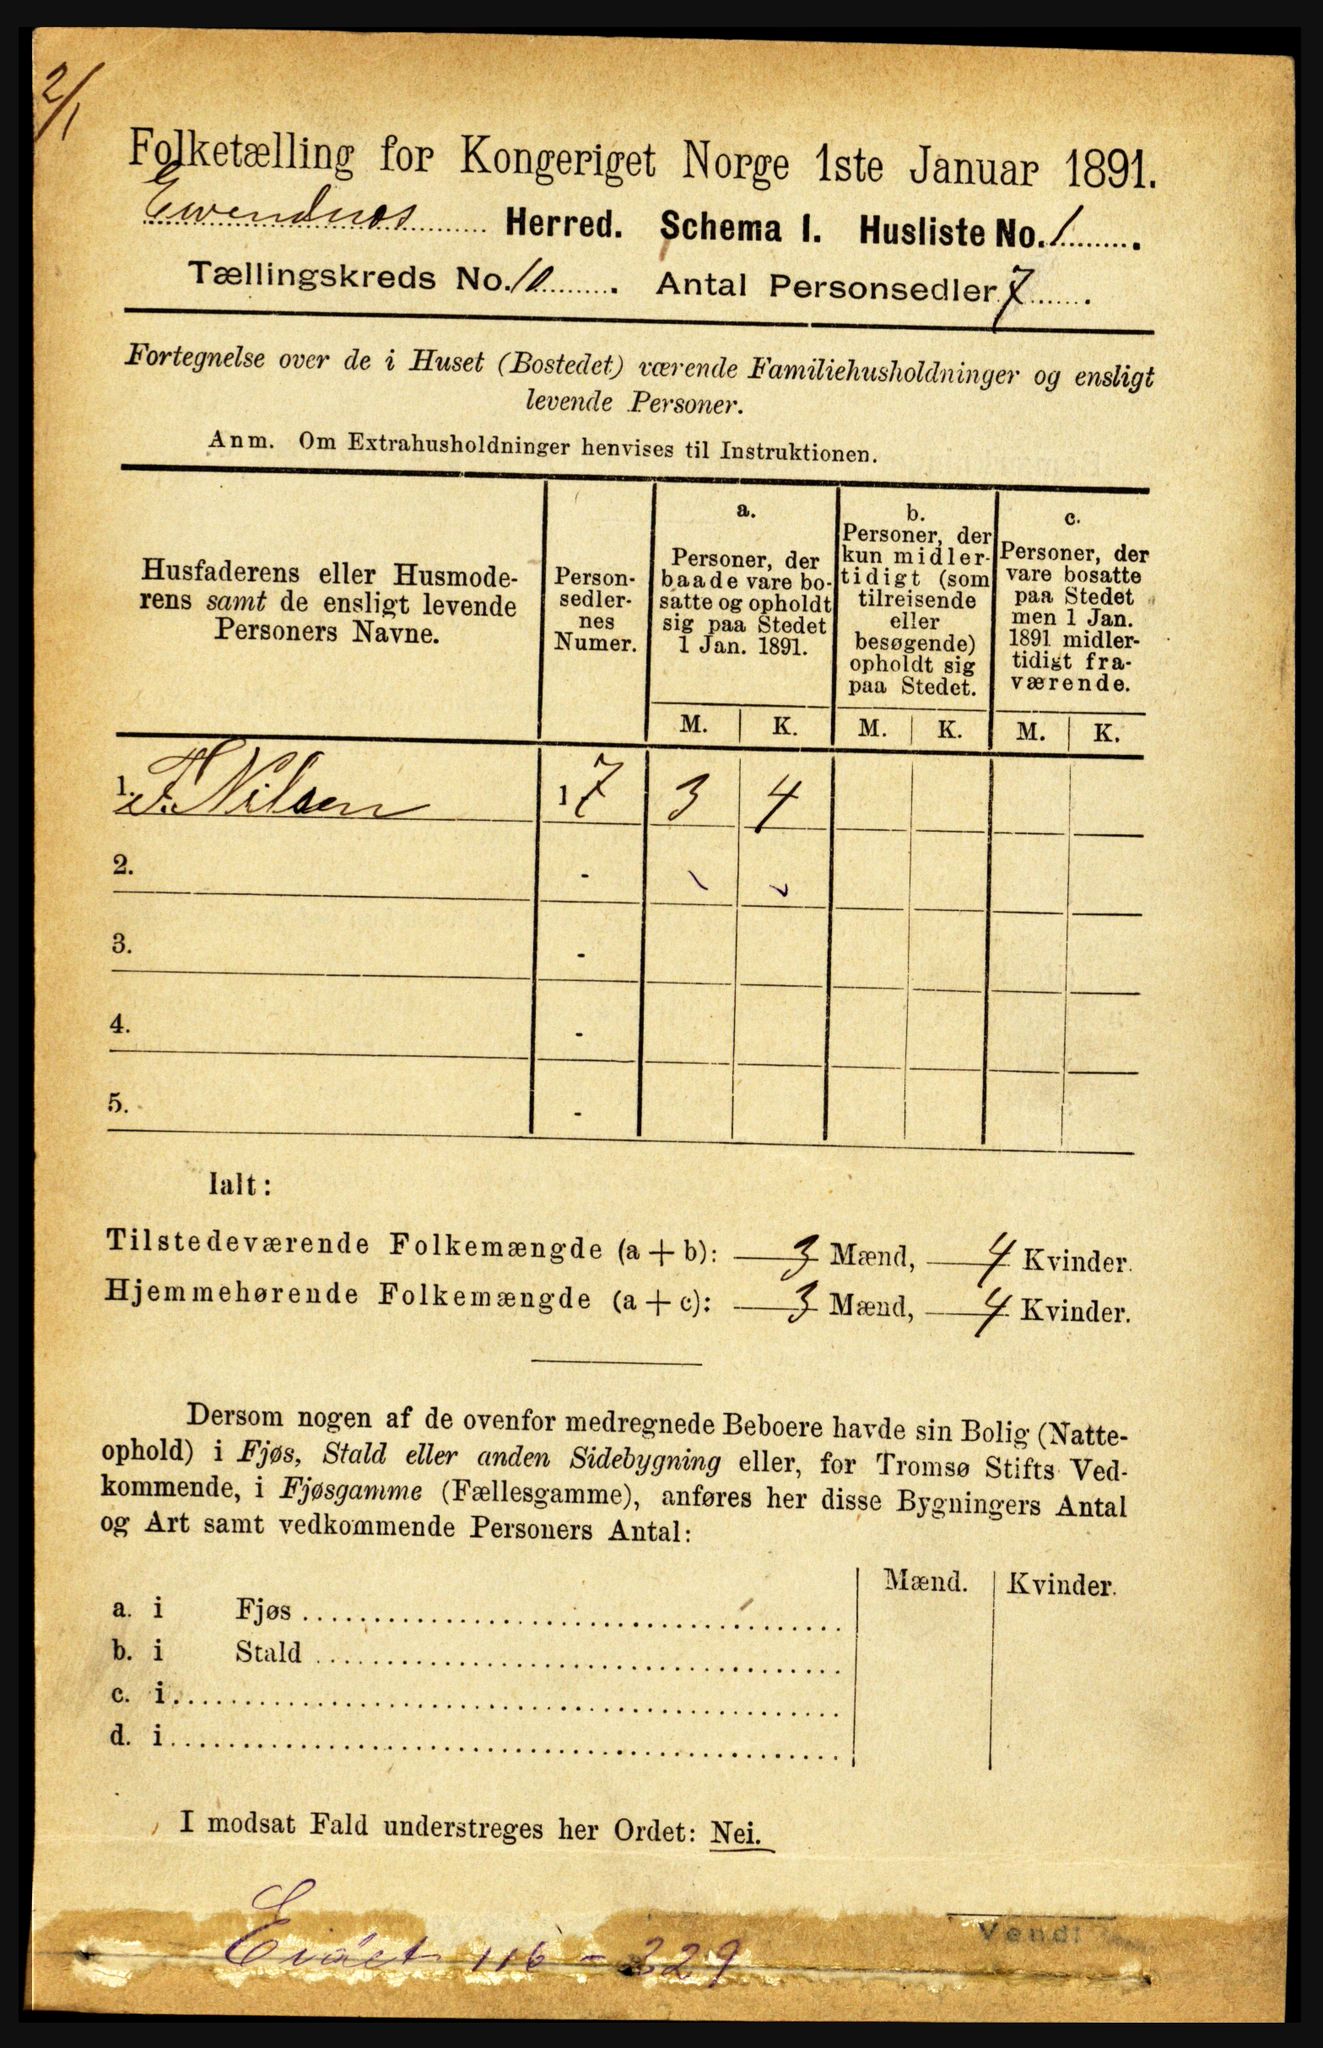 2/1
Folketælling for Kongeriget Norge 1ste Januar 1891.
Evendnes Herred. Schema I. Husliste No. 1.
Tællingskreds No. 10. Antal Personsedler 7.
Fortegnelse over de i Huset (Bostedet) værende Familiehusholdninger og ensligt
levende Personer.
Anm. Om Extrahusholdninger henvises til Instruktionen.
Husfaderens eller Husmode-
rens samt de ensligt levende
Personers Navne.
Person-
sedler-
nes
Numer.
a.
Personer, der
baade vare bo-
satte og opholdt
sig paa Stedet
1 Jan. 1891.
b.
Personer, der
kun midler-
tidigt (som
tilreisende
eller
besøgende)
opholdt sig
paa Stedet.
c.
Personer, der
vare bosatte
paa Stedet
men 1 Jan.
1891 midler-
tidigt fra-
værende.
M. K. M. K. M. K.
1. F. Nilsen 1 7 3 4
2. -
3. -
4. -
5. -
Ialt:
Tilstedeværende Folkemængde (a + b): 3 Mænd, 4 Kvinder.
Hjemmehørende Folkemængde (a + c): 3 Mænd, 4 Kvinder.
Dersom nogen af de ovenfor medregnede Beboere havde sin Bolig (Natte-
ophold) i Fjøs, Stald eller anden Sidebygning eller, for Tromsø Stifts Ved-
kommende, i Fjøsgamme (Fællesgamme), anføres her disse Bygningers Antal
og Art samt vedkommende Personers Antal:
Mænd. Kvinder.
a. i Fjøs
b. i Stald
c. i
d. i
I modsat Fald understreges her Ordet: Nei.
Vend!
116 - 229